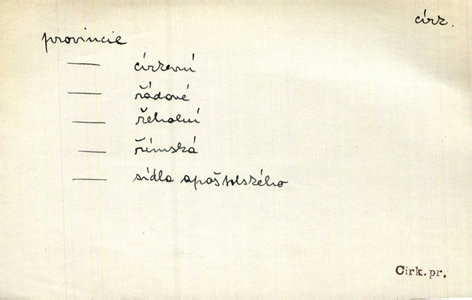 círk.
provincie
— církevní
— řádové
— řeholní
— římská
— sídla apoštolského
Círk. pr.